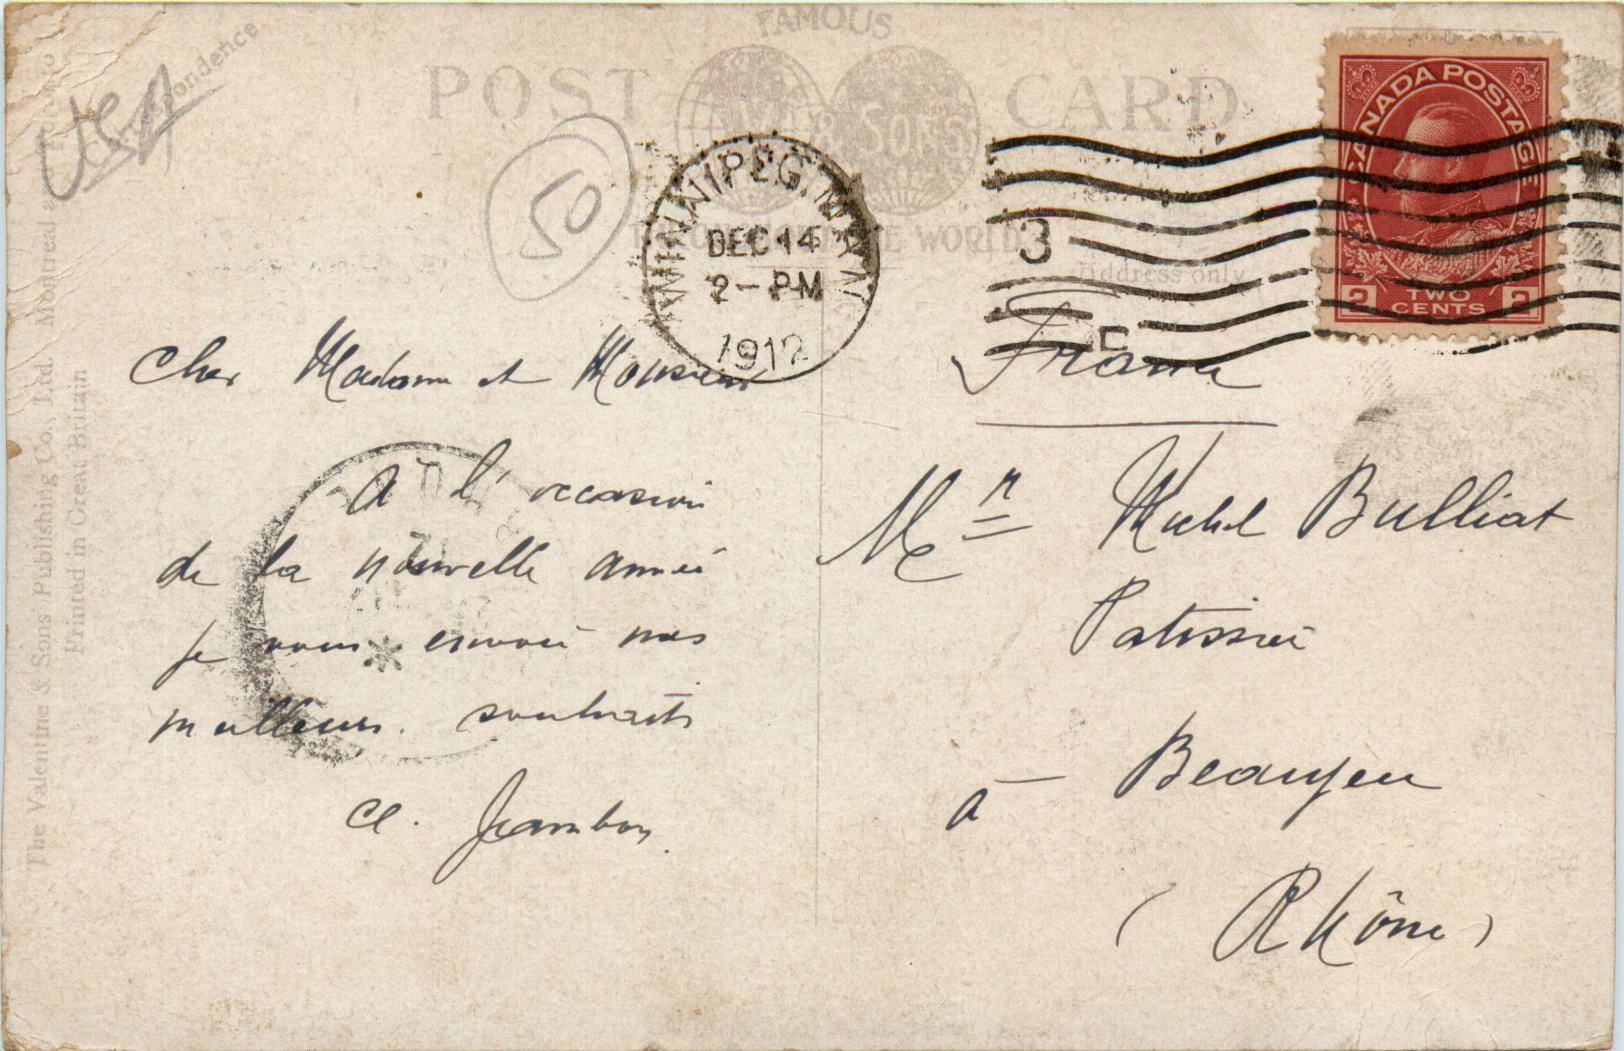 FAMOUS
POST CARD
& SONS
WORLD
Correspondence
Address only
USA
50
WINNIPEG, MAN.
DEC 14
2 - PM
1912
3
CANADA POSTAGE
2 TWO CENTS 2
Cher Madame et Monsieur
A l'occasion
de la nouvelle année
je vous envoie mes
meilleurs souhaits
Cl. Jambon
France
Mr Michel Bulliat
Patissier
à Beaujeu
(Rhône)
The Valentine & Sons Publishing Co., Ltd. Montreal and Toronto
Printed in Great Britain